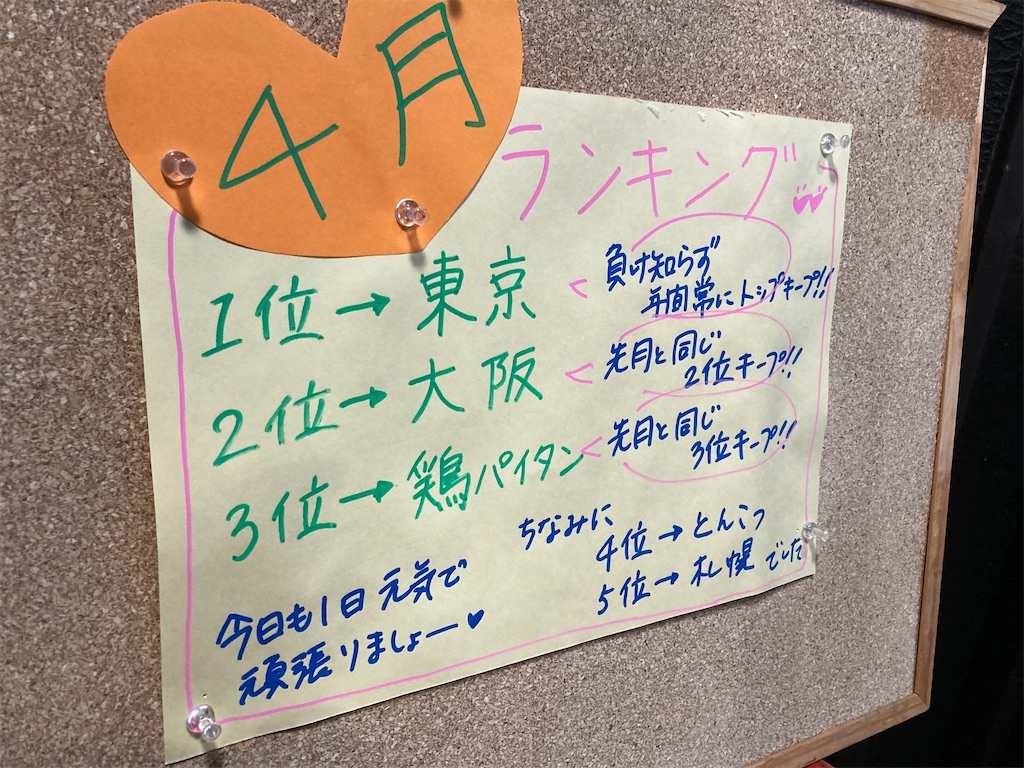 4月
ランキング
1位→東京
負け知らず
年間常にトップキープ!!
2位→大阪
先月と同じ
2位キープ!!
3位→鶏パイタン
先月と同じ
3位キープ!!
ちなみに
4位→とんこつ
5位→札幌でした
今日も1日元気で
頑張りましょー♥